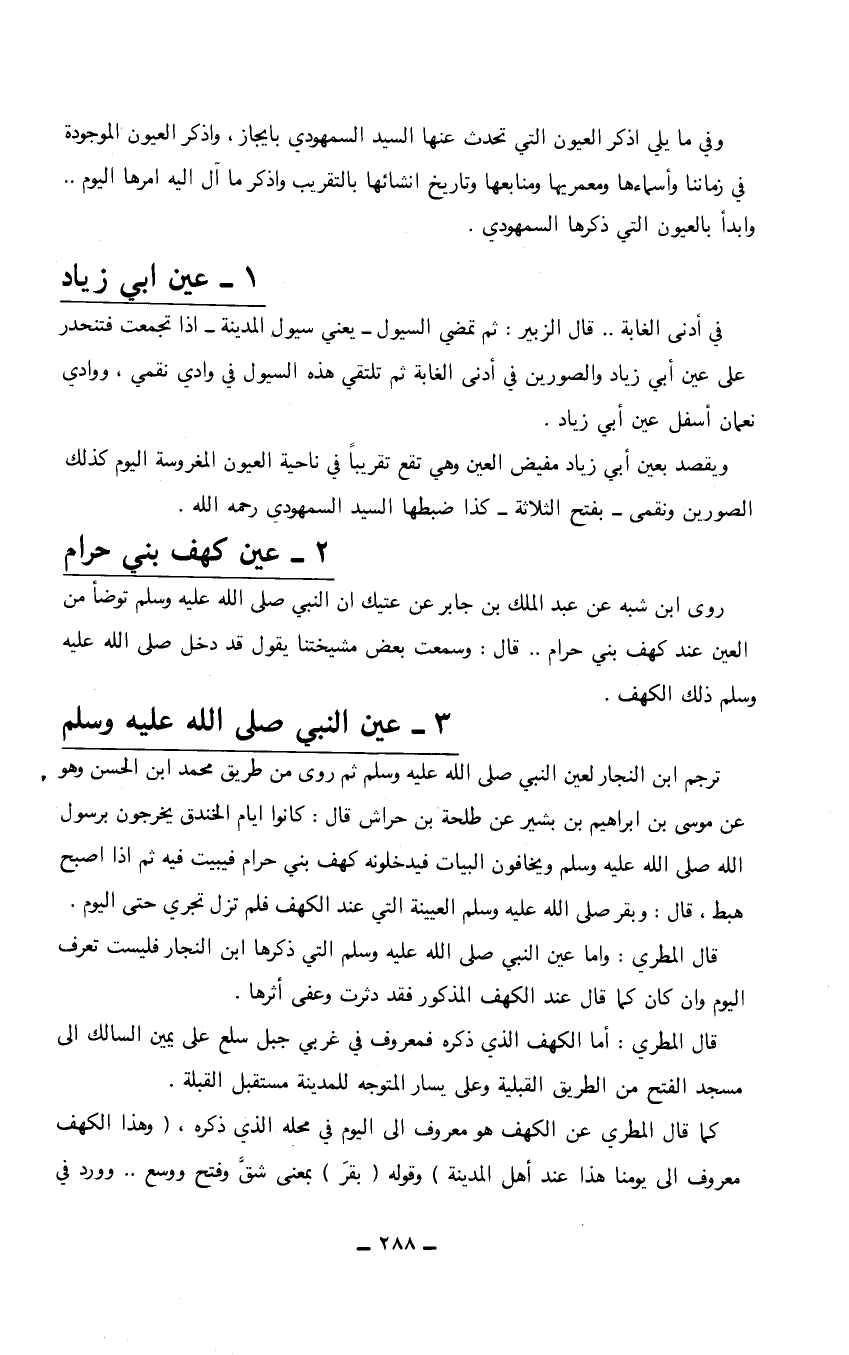 وفي ما يلي اذكر العيون التي تحدث عنها السيد السمهودي بايجاز ، واذكر العيون الموجودة
في زماننا وأسماءها ومعمريها ومنابعها وتاريخ انشائها بالتقريب واذكر ما آل اليه امرها اليوم ..
وابدأ بالعيون التي ذكرها السمهودي .
١ ـ عين ابي زياد
في أدنى الغابة .. قال الزبير : ثم تمضي السيول ـ يعني سيول المدينة ـ اذا تجمعت فتنحدر
على عين أبي زياد والصورين في أدنى الغابة ثم تلتقي هذه السيول في وادي نقمي ، ووادي
نعمان أسفل عين أبي زياد .
ويقصد بعين أبي زياد مفيض العين وهي تقع تقريباً في ناحية العيون المغروسة اليوم كذلك
الصورين ونقمى ـ بفتح الثلاثة ـ كذا ضبطها السيد السمهودي رحمه الله .
٢ ـ عين كهف بني حرام
روى ابن شبه عن عبد الملك بن جابر عن عتيك ان النبي صلى الله عليه وسلم توضأ من
العين عند كهف بني حرام .. قال : وسمعت بعض مشيختنا يقول قد دخل صلى الله عليه
وسلم ذلك الكهف .
٣ ـ عين النبي صلى الله عليه وسلم
ترجم ابن النجار لعين النبي صلى الله عليه وسلم ثم روى من طريق محمد ابن الحسن وهو
عن موسى بن ابراهيم بن بشير عن طلحة بن حراش قال : كانوا ايام الخندق يخرجون برسول
الله صلى الله عليه وسلم ويخافون البيات فيدخلونه كهف بني حرام فيبيت فيه ثم اذا اصبح
هبط ، قال : وبقر صلى الله عليه وسلم العيينة التي عند الكهف فلم تزل تجري حتى اليوم .
قال المطري : واما عين النبي صلى الله عليه وسلم التي ذكرها ابن النجار فليست تعرف
اليوم وان كان كما قال عند الكهف المذكور فقد دثرت وعفى أثرها .
قال المطري : أما الكهف الذي ذكره فمعروف في غربي جبل سلع على يمين السالك الى
مسجد الفتح من الطريق القبلية وعلى يسار المتوجه للمدينة مستقبل القبلة .
كما قال المطري عن الكهف هو معروف الى اليوم في محله الذي ذكره ، ( وهذا الكهف
معروف الى يومنا هذا عند أهل المدينة ) وقوله ( بقرَ ) بمعنى شقَّ وفتح ووسع .. وورد في
ـ ٢٨٨ ـ